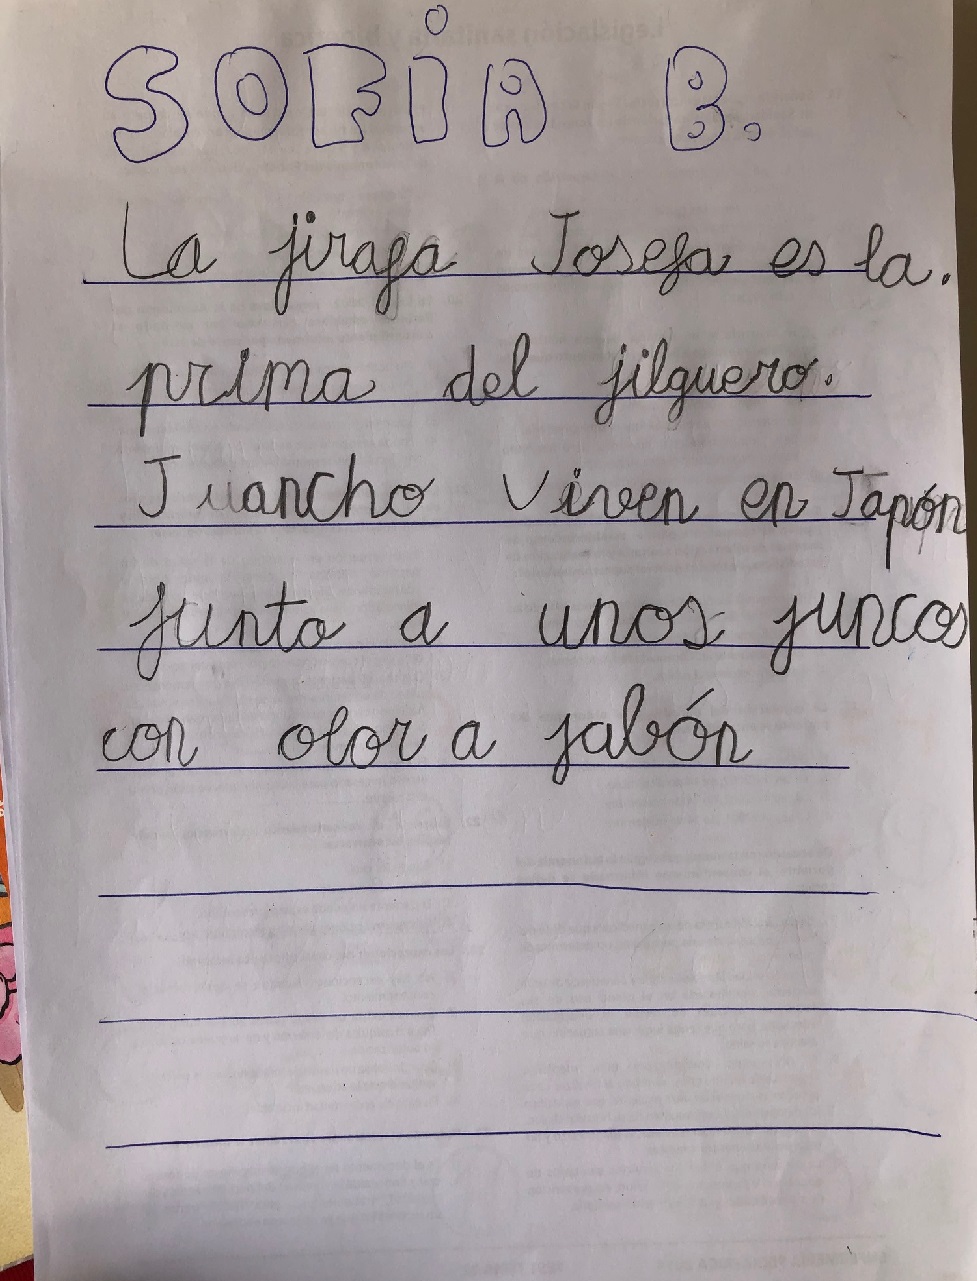 SOFIA B.
La jirafa Josefa es la.
prima del jilguero.
Juancho viven en Japón
junto a unos juncos
con olor a jabón